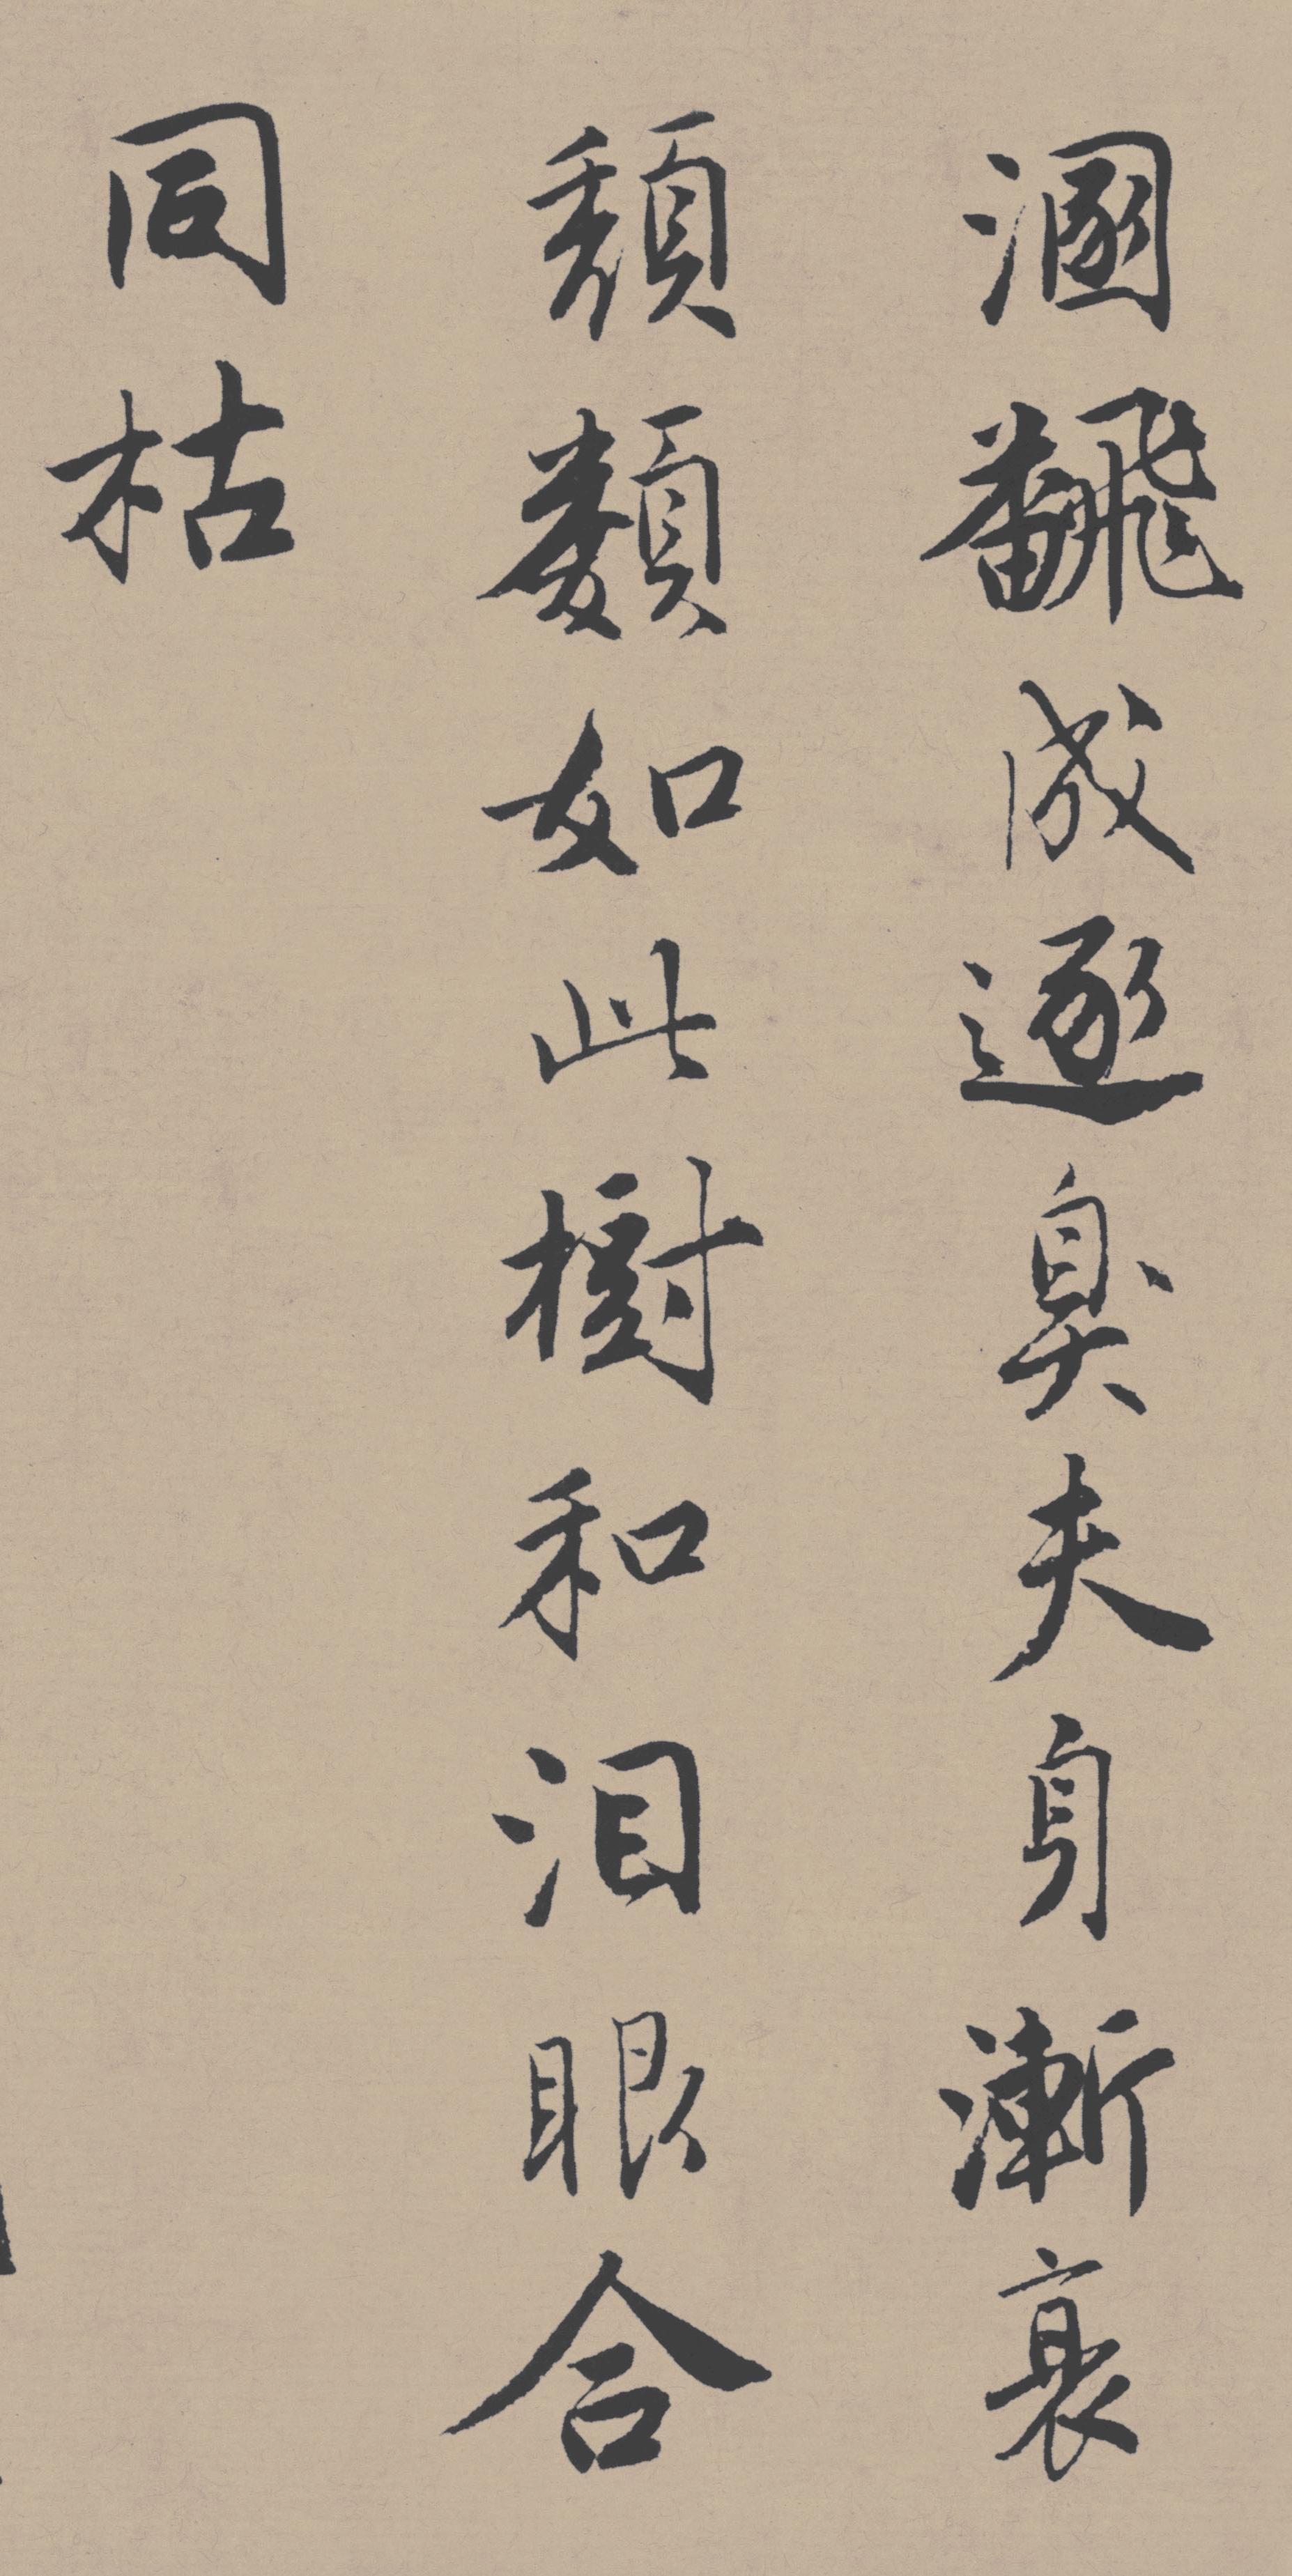 溷飜成逐臭夫身漸衰
頹類如此樹和泪眼合
同枯